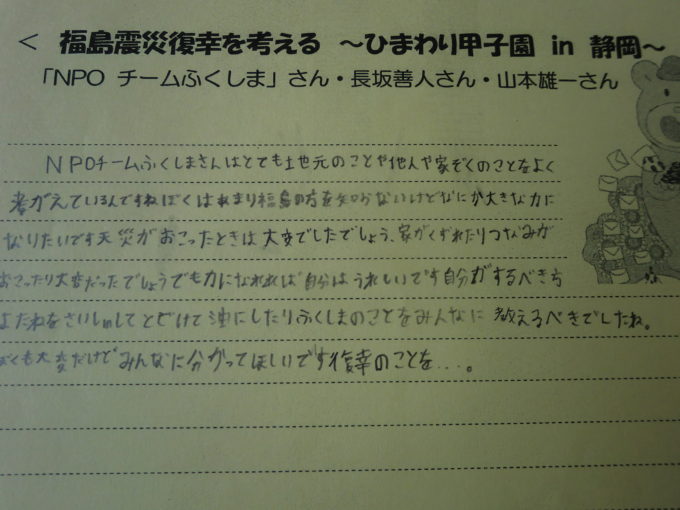 < 福島震災復幸を考える ～ひまわり甲子園 in 静岡～
「NPO チームふくしま」さん・長坂善人さん・山本雄一さん
NPOチームふくしまさんはとても土地元のことや他人や家ぞくのことをよく
考がえているんですねぼくはあまり福島の方を知らないけどなにか大きな力に
なりたいです天災がおこったときは大変でしたでしょう、家がくずれたりつなみが
おこったり大変だったでしょうでも力になれれば自分はうれしいです自分がするべき方
はたねをさいしゅしてとどけて油にしたりふくしまのことをみんなに教えるべきでしたね。
ぼくも大変だけどみんなに分かってほしいです復幸のことを...。